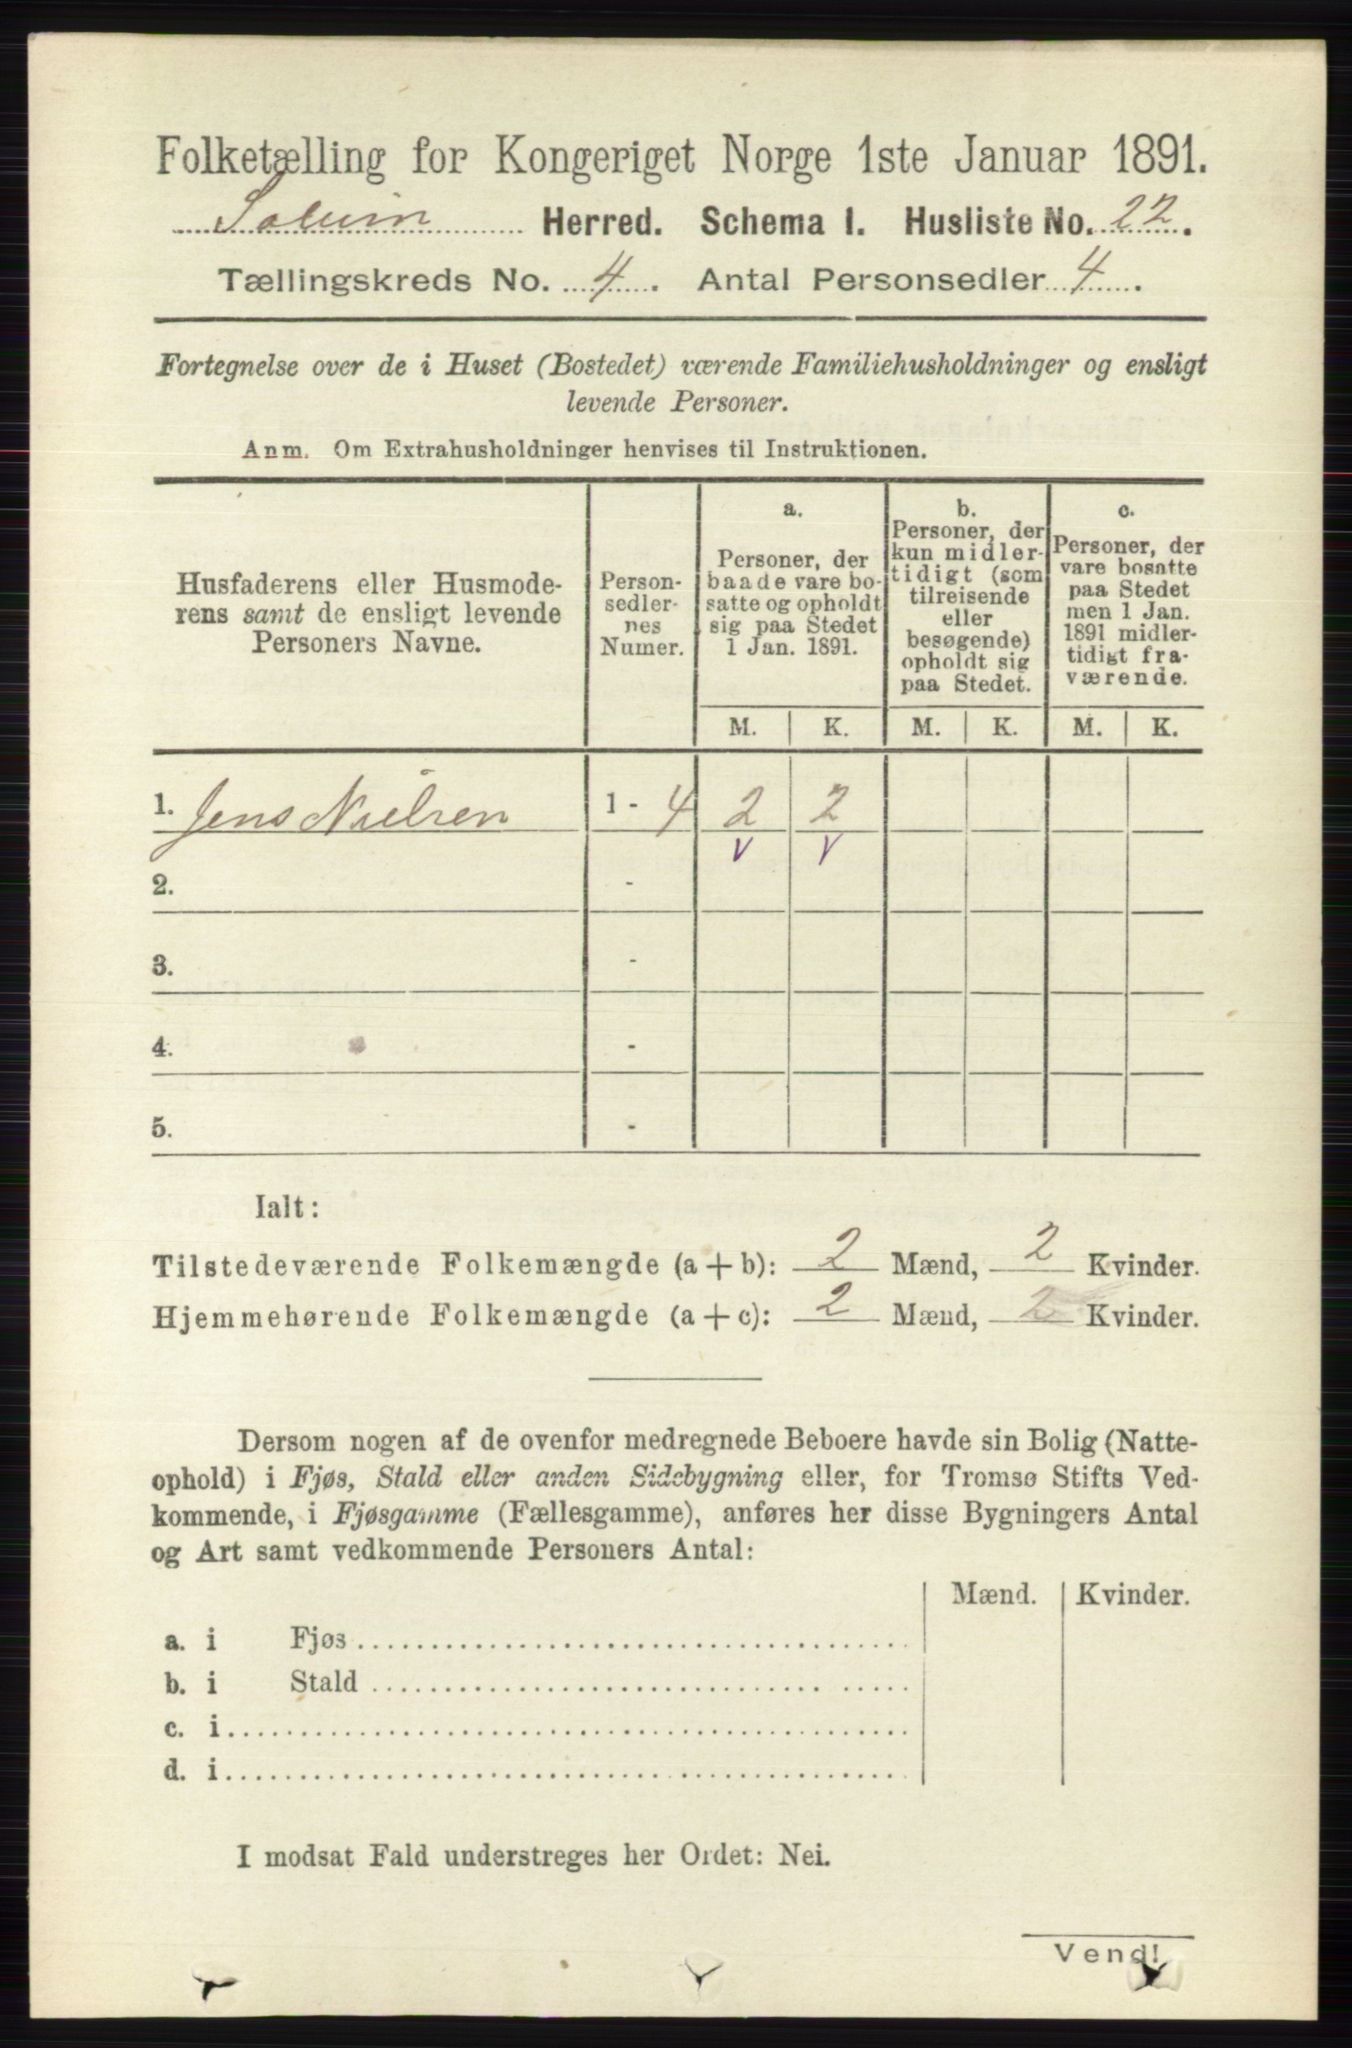 Folketælling for Kongeriget Norge 1ste Januar 1891.
Solum Herred. Schema I. Husliste No. 22.
Tællingskreds No. 4. Antal Personsedler 4.
Fortegnelse over de i Huset (Bostedet) værende Familiehusholdninger og ensligt
levende Personer.
Anm. Om Extrahusholdninger henvises til Instruktionen.
Husfaderens eller Husmode-
rens samt de ensligt levende
Personers Navne.
Person-
sedler-
nes
Numer.
a.
Personer, der
baade vare bo-
satte og opholdt
sig paa Stedet
1 Jan. 1891.
b.
Personer, der
kun midler-
tidigt (som
tilreisende
eller
besøgende)
opholdt sig
paa Stedet.
c.
Personer, der
vare bosatte
paa Stedet
men 1 Jan.
1891 midler-
tidigt fra-
værende.
M. K. M. K. M. K.
1. Jens Nielsen 1 - 4 2 2
v v
2. -
3. -
4. -
5. -
Ialt:
Tilstedeværende Folkemængde (a + b): 2 Mænd, 2 Kvinder.
Hjemmehørende Folkemængde (a + c): 2 Mænd, 2 Kvinder.
Dersom nogen af de ovenfor medregnede Beboere havde sin Bolig (Natte-
ophold) i Fjøs, Stald eller anden Sidebygning eller, for Tromsø Stifts Ved-
kommende, i Fjøsgamme (Fællesgamme), anføres her disse Bygningers Antal
og Art samt vedkommende Personers Antal:
Mænd. Kvinder.
a. i Fjøs
b. i Stald
c. i
d. i
I modsat Fald understreges her Ordet: Nei.
Vend!